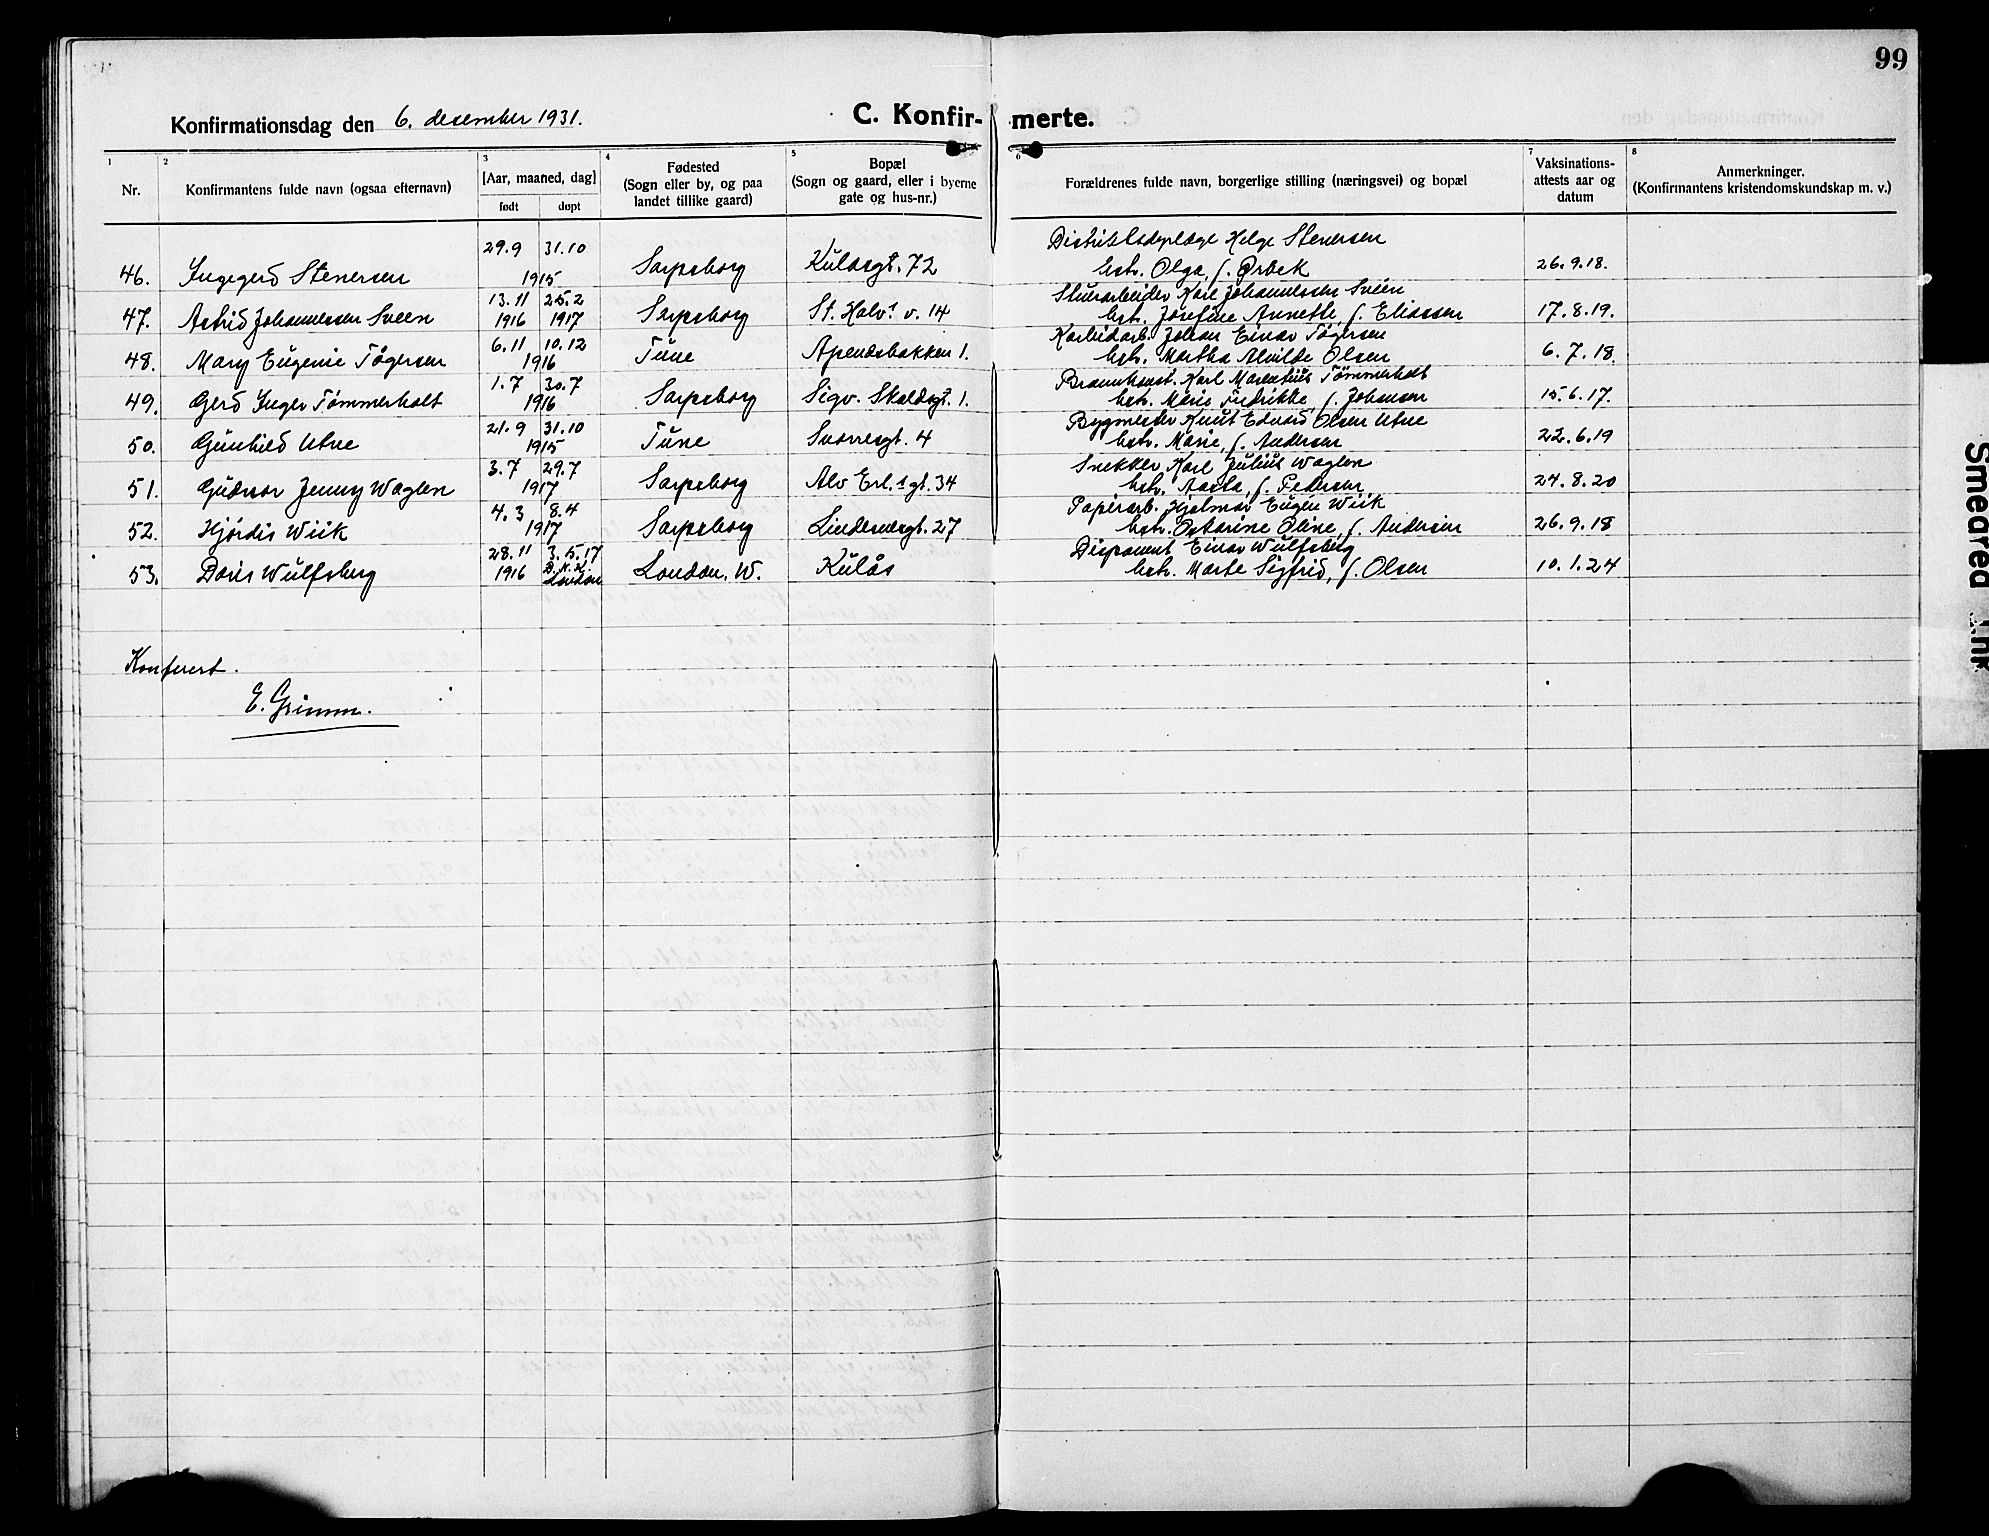 99
Konfirmationsdag den 6. desember 1931.
C. Konfir- merte.
1 2 3 4 5 6 7 8
Nr.
Konfirmantens fulde navn (ogsaa efternavn)
[Aar, maaned, dag]
født døpt
Fødested
(Sogn eller by, og paa
landet tillike gaard)
Bopæl
(Sogn og gaard, eller i byerne
gate og hus-nr.)
Forældrenes fulde navn, borgerlige stilling (næringsvei) og bopæl
Vaksinations-
attests aar og
datum
Anmerkninger.
(Konfirmantens kristendomskundskap m. v.)
29.9 31.10 Distriktslæge Helge Stenersen
46. Ingegerd Stenersen 1915 Sarpsborg Kulåsgt. 72 hstr. Olga, f. Ørbek 26.9.18.
13.11 25.2 Stuearbeider Karl Johannessen Sveen
47. Astrid Johannessen Sveen 1916 1917 Sarpsborg St. Halvs v. 14 hstr. Josefine Annette, f. Eliassen 17.8.19.
6.11 10.12 Karbidarb. Johan Einar Tøgersen
48. Mary Eugenie Tøgersen 1916 Tune Apenesbakken 1. hstr. Martha Alvilde Olsen 6.7.18.
1.7 30.7 Brannkonst. Karl Marentius Tømmerholt
49. Gerd Inger Tømmerholt 1916 Sarpsborg Sigv. Skaldsgt. 1. hstr. Marie Fredrikke, f. Johansen 15.6.17.
21.9 31.10 Bygmester Knut Edvard Olsen Utne
50. Gunhild Utne 1915 Tune Snorresgt. 4 hstr. Marie, f. Andersen 22.6.19
3.7 29.7 Snekker Karl Julius Waglen
51. Gudrun Jenny Waglen 1917 Sarpsborg Alv Erl.s gt. 34 hstr. Aasta, f. Pedersen 24.8.20
4.3 8.4 Papirarb. Hjalmar Eugen Wiik
52. Hjørdis Wiik 1917 Sarpsborg Lindemansgt. 27 hstr. Oline, f. Andersen 26.9.18
28.11 3.5.17 Disponent Einar Wulfsberg
53. Doris Wulfsberg 1916 D.N.K. London London, W. Kulås hstr. Marte Sigfrid, f. Olsen 10.1.24
Konferert.
E. Grimm.
Smeared Ink